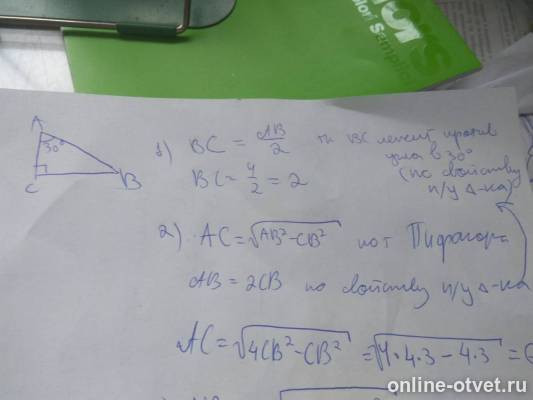 A
30°
C
B
1) BC = AB/2 тк BC лежит против
угла в 30°
BC = 4/2 = 2 (по свойству
п/у Δ-ка)
2) AC = √AB²-CB² по т Пифагор
AB = 2CB по свойству п/у Δ-ка
AC = √4CB²-CB² = √4·4·3-4·3 =
online-otvet.ru